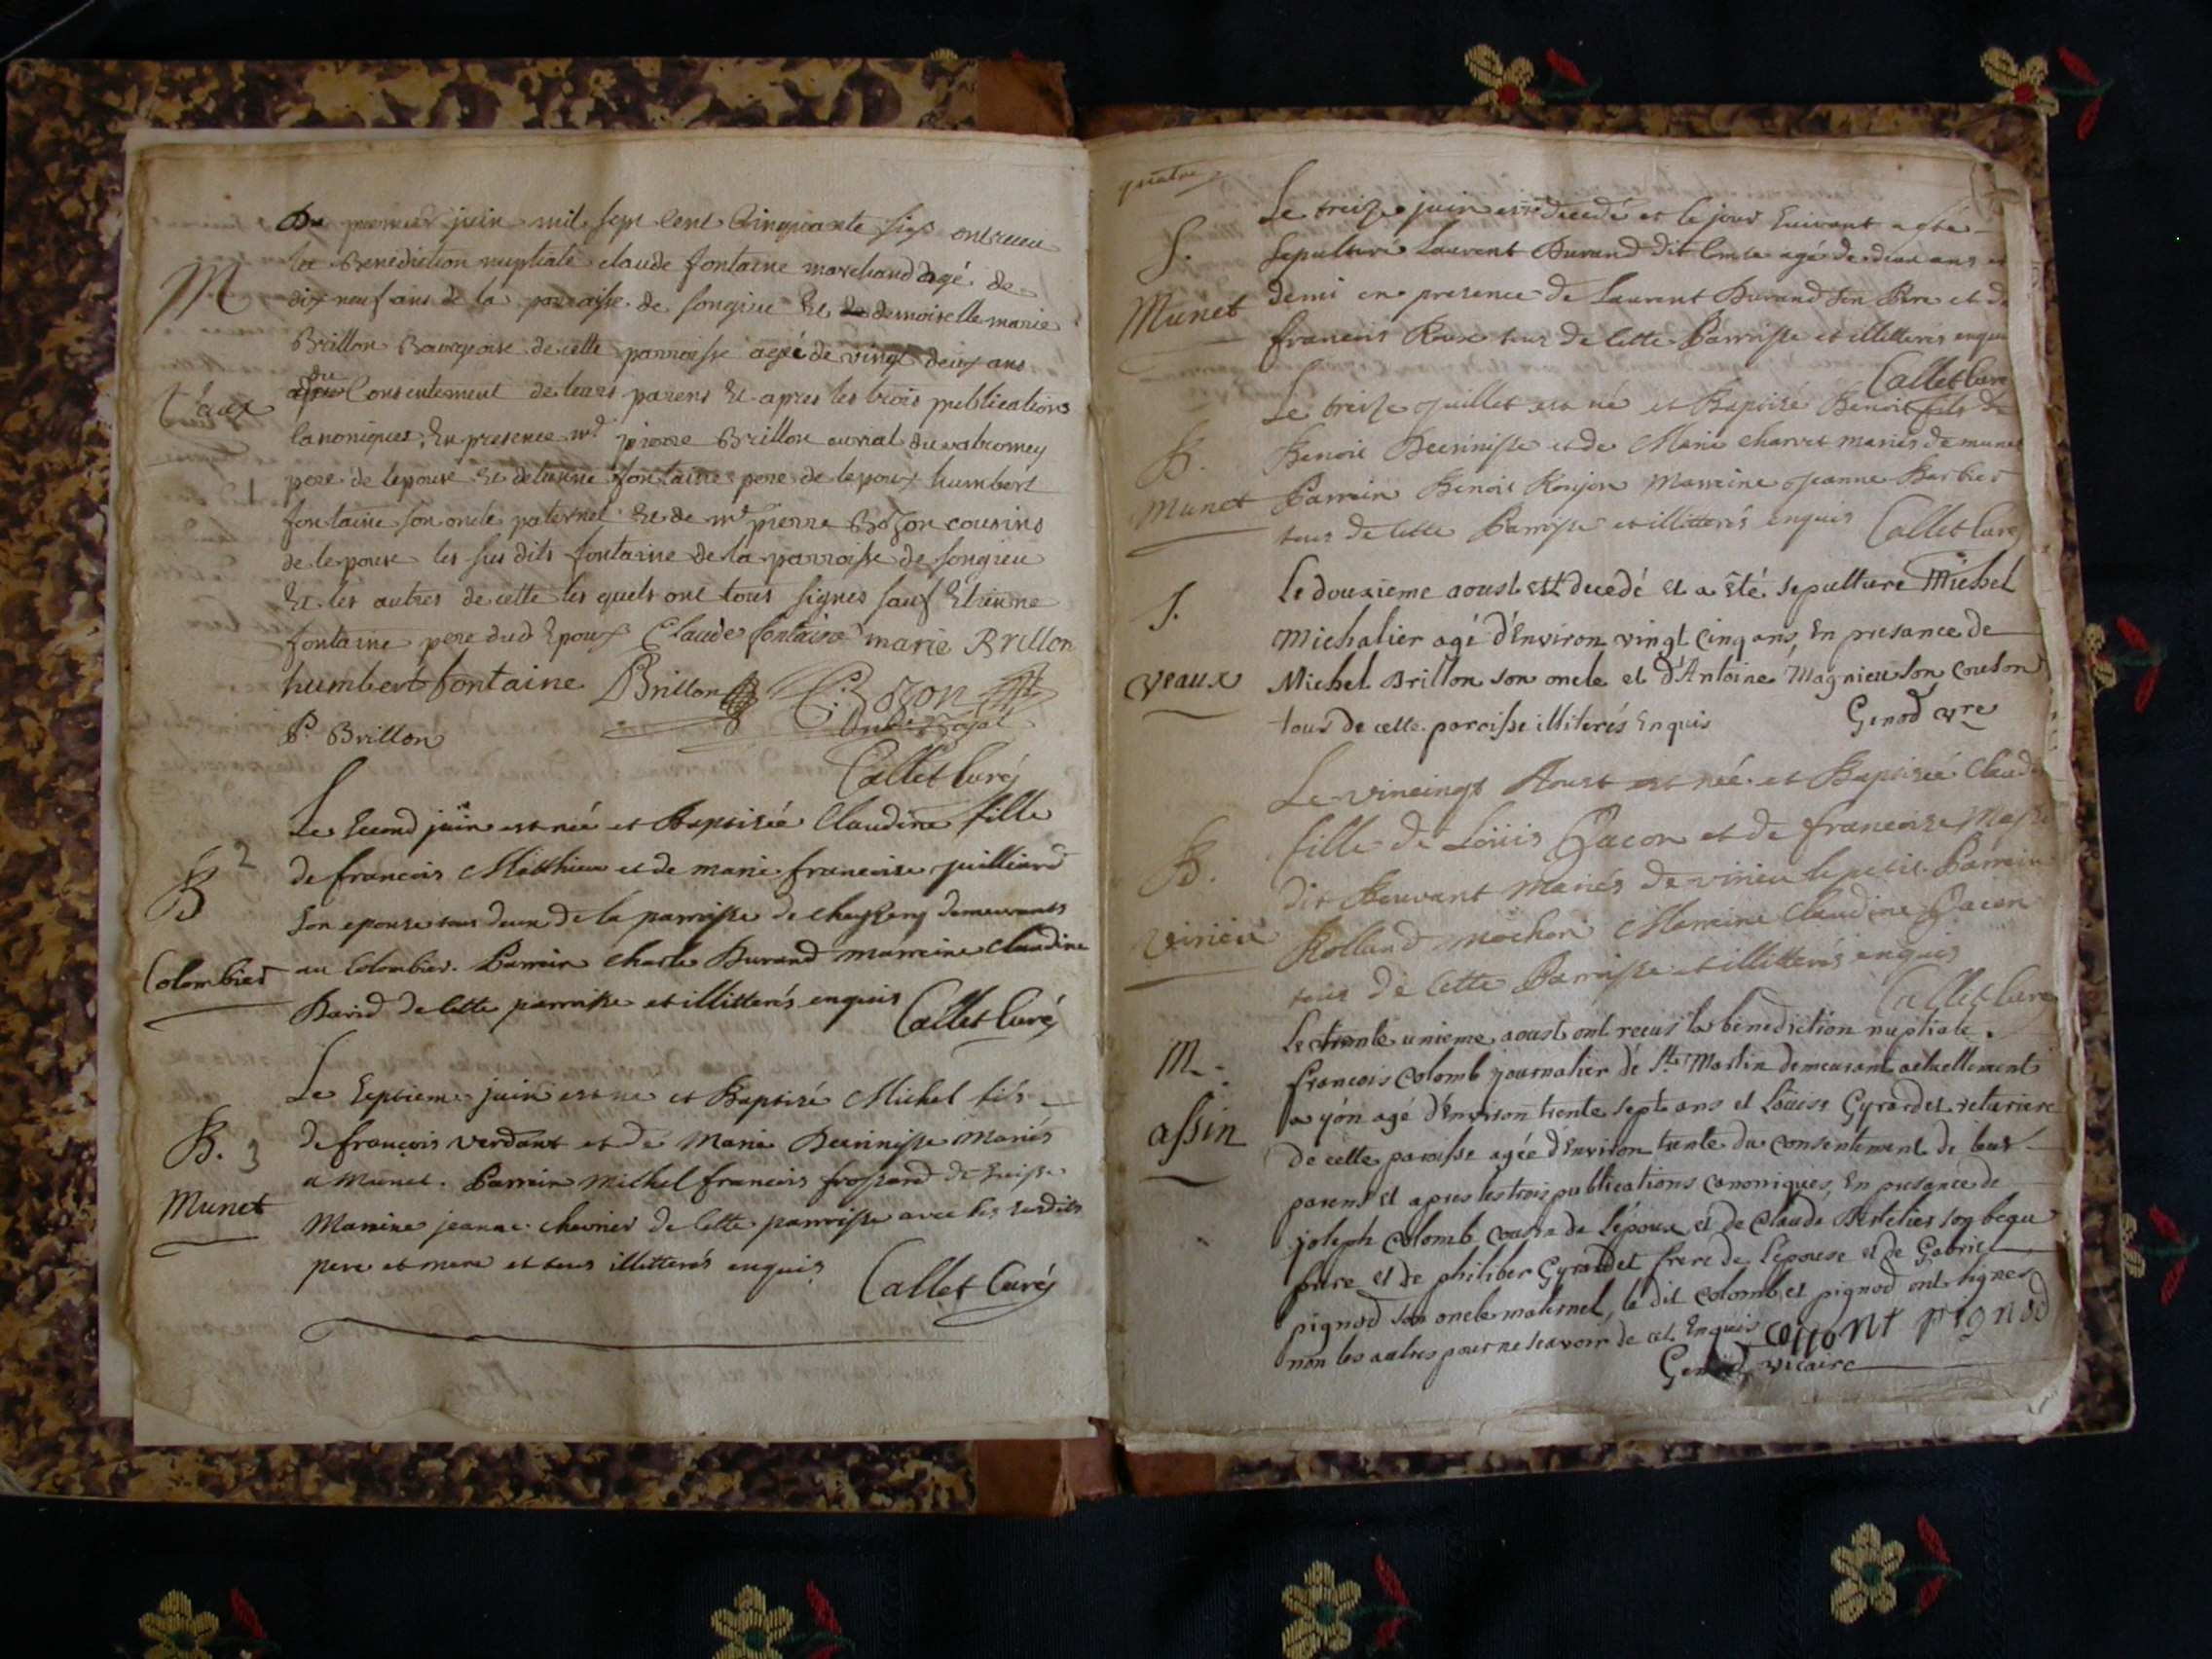 Du premier juin mil sept cent cinquante six ont receu
la Benediction nuptiale claude fontaine marchand agé de
M
dix neuf ans de la parroisse de songieu Et de demoiselle marie
Brillon Bourgeoise de cette parroisse agée de vingt deux ans
du
Veaux
Consentement de leurs parens Et apres les trois publications
Canoniques, En presence mr pierre Brillon du valromey
pere de lepouse Et detienne fontaine pere de lepoux humbert
fontaine son oncle paternel Et de mr pierre Bozon cousins
de lepouse les sus dits fontaine de la parroisse de songieu
Et les autres de cette les quels ont tous signes sauf Etienne
fontaine pere dud Epoux Claude fontaine marie Brillon
humbert fontaine Brillon Bozon
P. Brillon
Callet Curé
Le second juin est née et Baptisée Claudine fille
B 2
de francois Matthieu et de marie francoise juilliard
son epouse tous deux de la parroisse de demeurants
Colombier
au Colombier. Parrain Charle Durand marreine Claudine
David de cette parroisse et illitterés enquis Callet Curé
Le septieme juin est né et Baptisé Michel fils
B. 3
de françois verdant et de Marie Decrinisse Mariés
Munet
a Munet. Parrain Michel francois frossard de suisse
Marrine jeanne chevrier de cette parroisse avec les susdits
pere et mere et tous illitterés enquis
Callet Curé
quatre
Le treize juin est decedé et le jour suivant a esté
S.
sepulturé Laurent Durand dit agé de deux ans et
Munet
demi en presence de Laurent Durand son Pere et de
francois Roux tous de cette Parroisse et illitterés enquis
Callet Curé
Le treize juillet est né et Baptisé Benoit fils de
B.
Benoit Decrinisse et de Marie charvet mariés de munet
Munet
Parrain Benoit Ronjon Marreine Jeanne Barbier
tous de cette Parroisse et illitterés enquis Callet Curé
Le douxieme aoust est decedé et a été sepulturé Michel
S.
Michalier agé d'Environ vingt cinq ans, En presance de
Veaux
Michel Brillon son oncle et d'Antoine Magnieu son Couson
tous de cette paroisse illiterés Enquis Genod vre
Le vincingt Aoust est née et Baptisée Claud
fille de Loüis Jacon et de francoise
B.
dit Bouvant Mariés de virieu le petit. Parrain
Virieu
Rolland mochon Marreine Claudine Jacon
tous de cette Parroisse et illitterés enquis
Callet Curé
Le trente unieme aoust ont recus la bénédiction nuptiale.
M.
francois Colomb journalier de St Martin demeurant actuellement
a yon agé d'Environ trente sept ans et Loüise Gyrardet
assin
de cette paroisse agée d'Environ trente du consentement de leur
parens et apres les trois publications Canoniques, En presance de
joseph Colomb cousin de l'époux et de Claude Bertelier son beau
frere et de philiber Gyrardet frere de l'épouse et de Gabriel
pignod son oncle maternel, le dit Colomb et pignod ont signes
non les autres pour ne scavoir de ce Enquis Collont pignod
Genod vicaire